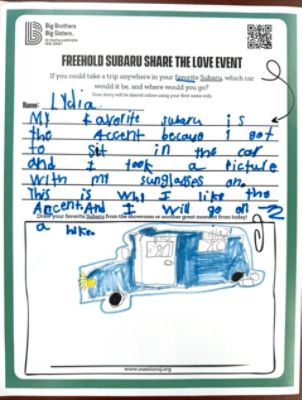 Big Brothers
Big Sisters.
FREEHOLD SUBARU SHARE THE LOVE EVENT
If you could take a trip anywhere in your favorite Subaru, which car
would it be, and where would you go?
Your story will be shared online using your first name only.
Name: Lydia
My favorite subaru is
the Accent becaus I got
to sit in the car
and I took a picture
with my sunglasses on.
This is why I like the
Accent. And I will go on
Draw your favorite Subaru from the showroom or another great moment from today!
a hike.